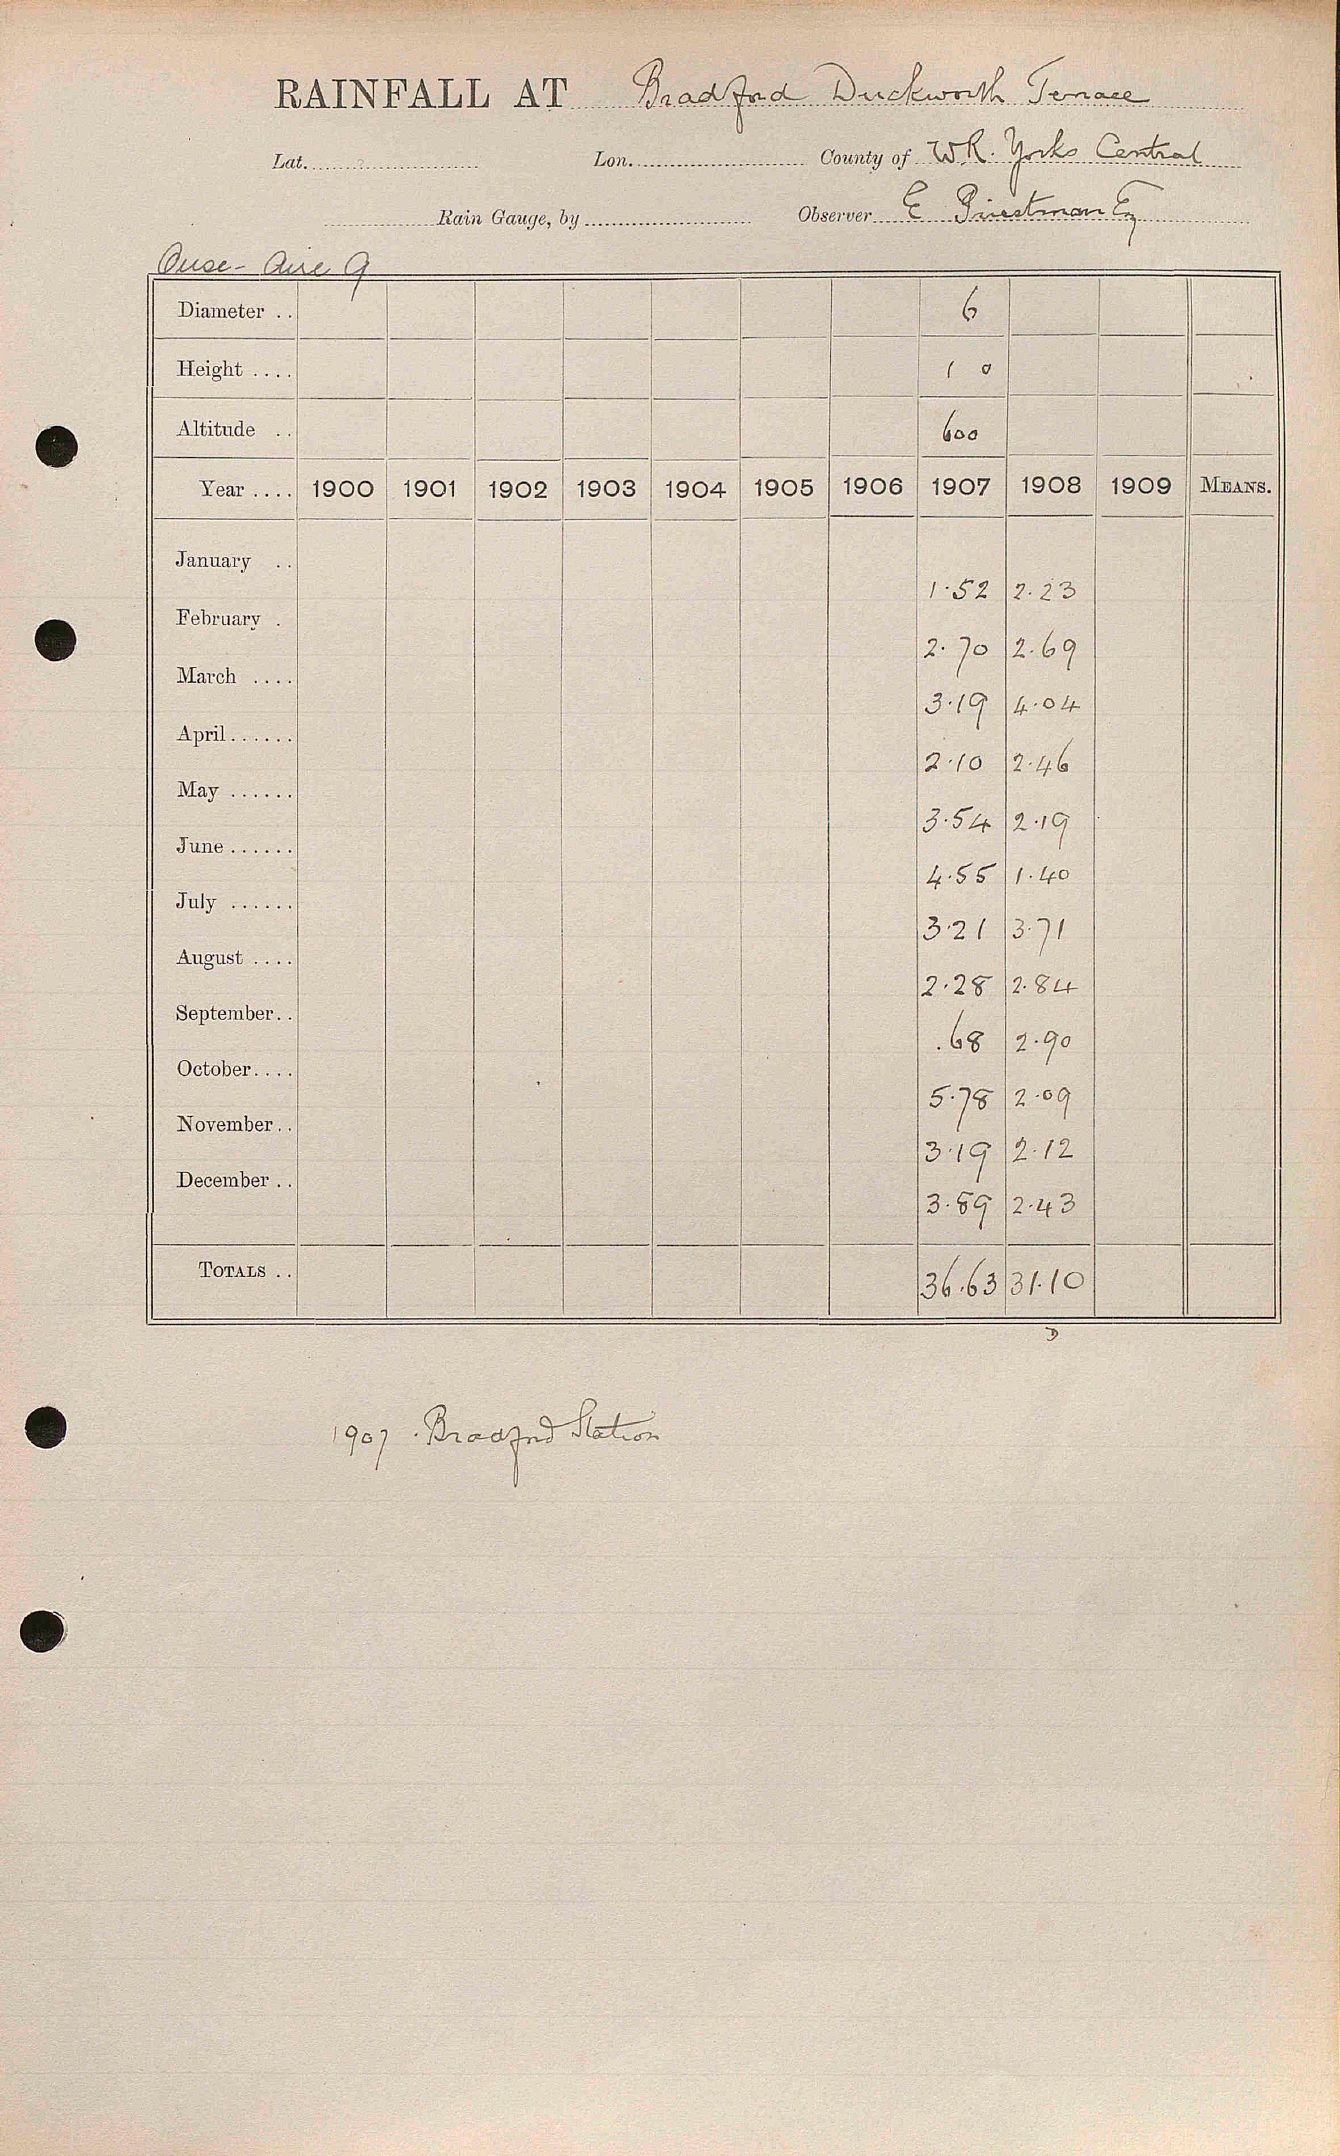 RAINFALL AT Bradford Duckworth Terrace
Lat. Lon. County of W.R. Yorks Central
Rain Gauge, by Observer E Priestman Esq
Ouse - Aire 9
Diameter .. 6
Height .... 1 0
Altitude .. 600
Year .... 1900 1901 1902 1903 1904 1905 1906 1907 1908 1909 MEANS.
January .. 1.52 2.23
February . 2.70 2.69
March .... 3.19 4.04
April...... 2.10 2.46
May ...... 3.54 2.19
June ...... 4.55 1.40
July ...... 3.21 3.71
August .... 2.28 2.84
September.. .68 2.90
October.... 5.78 2.09
November.. 3.19 2.12
December .. 3.89 2.43
TOTALS .. 36.63 31.10
D
1907 . Bradford Station